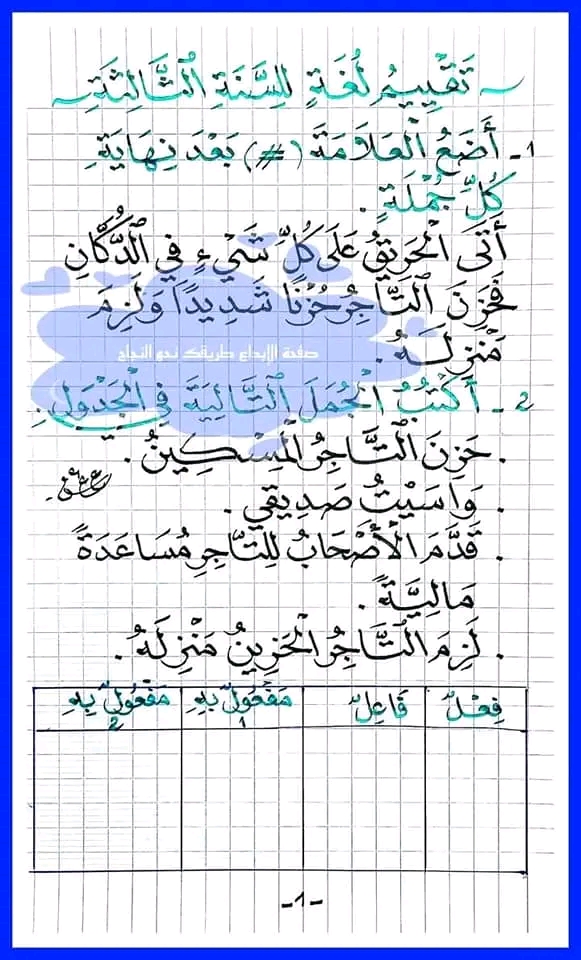 تَقْيِيمُ لُغَةٍ لِلسَّنَةِ الثَّالِثَةِ
1- أَضَعُ الْعَلَامَةَ (#) بَعْدَ نِهَايَةِ
كُلِّ جُمْلَةٍ .
أَتَى الْحَرِيقُ عَلَى كُلِّ شَيْءٍ فِي الدُّكَّانِ
فَحَزِنَ التَّاجِرُ حُزْنًا شَدِيدًا وَلَزِمَ
مَنْزِلَهُ .
صفحة الإبداع طريقك نحو النجاح
2- أَكْتُبُ الْجُمَلَ التَّالِيَةَ فِي الْجَدْوَلِ .
. حَزِنَ التَّاجِرُ الْمِسْكِينُ .
. وَاسَيْتُ صَدِيقِي .
. قَدَّمَ الْأَصْحَابُ لِلتَّاجِرِ مُسَاعَدَةً
مَالِيَّةً .
. لَزِمَ التَّاجِرُ الْحَزِينُ مَنْزِلَهُ .
فِعْلٌ فَاعِلٌ مَفْعُولٌ بِهِ 1 مَفْعُولٌ بِهِ 2
-1-